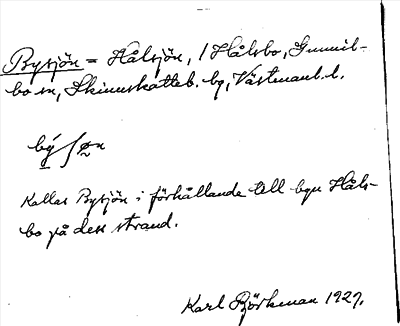 Bysjön = Hålsjön, / Hålsbo, Gunnil-
bo sn, Skinnskatteb. bg, Västmanl. l.
bý ʃøn
Kallas Bysjön i förhållande till byn Håls-
bo på dess strand.
Karl Björkman 1929.